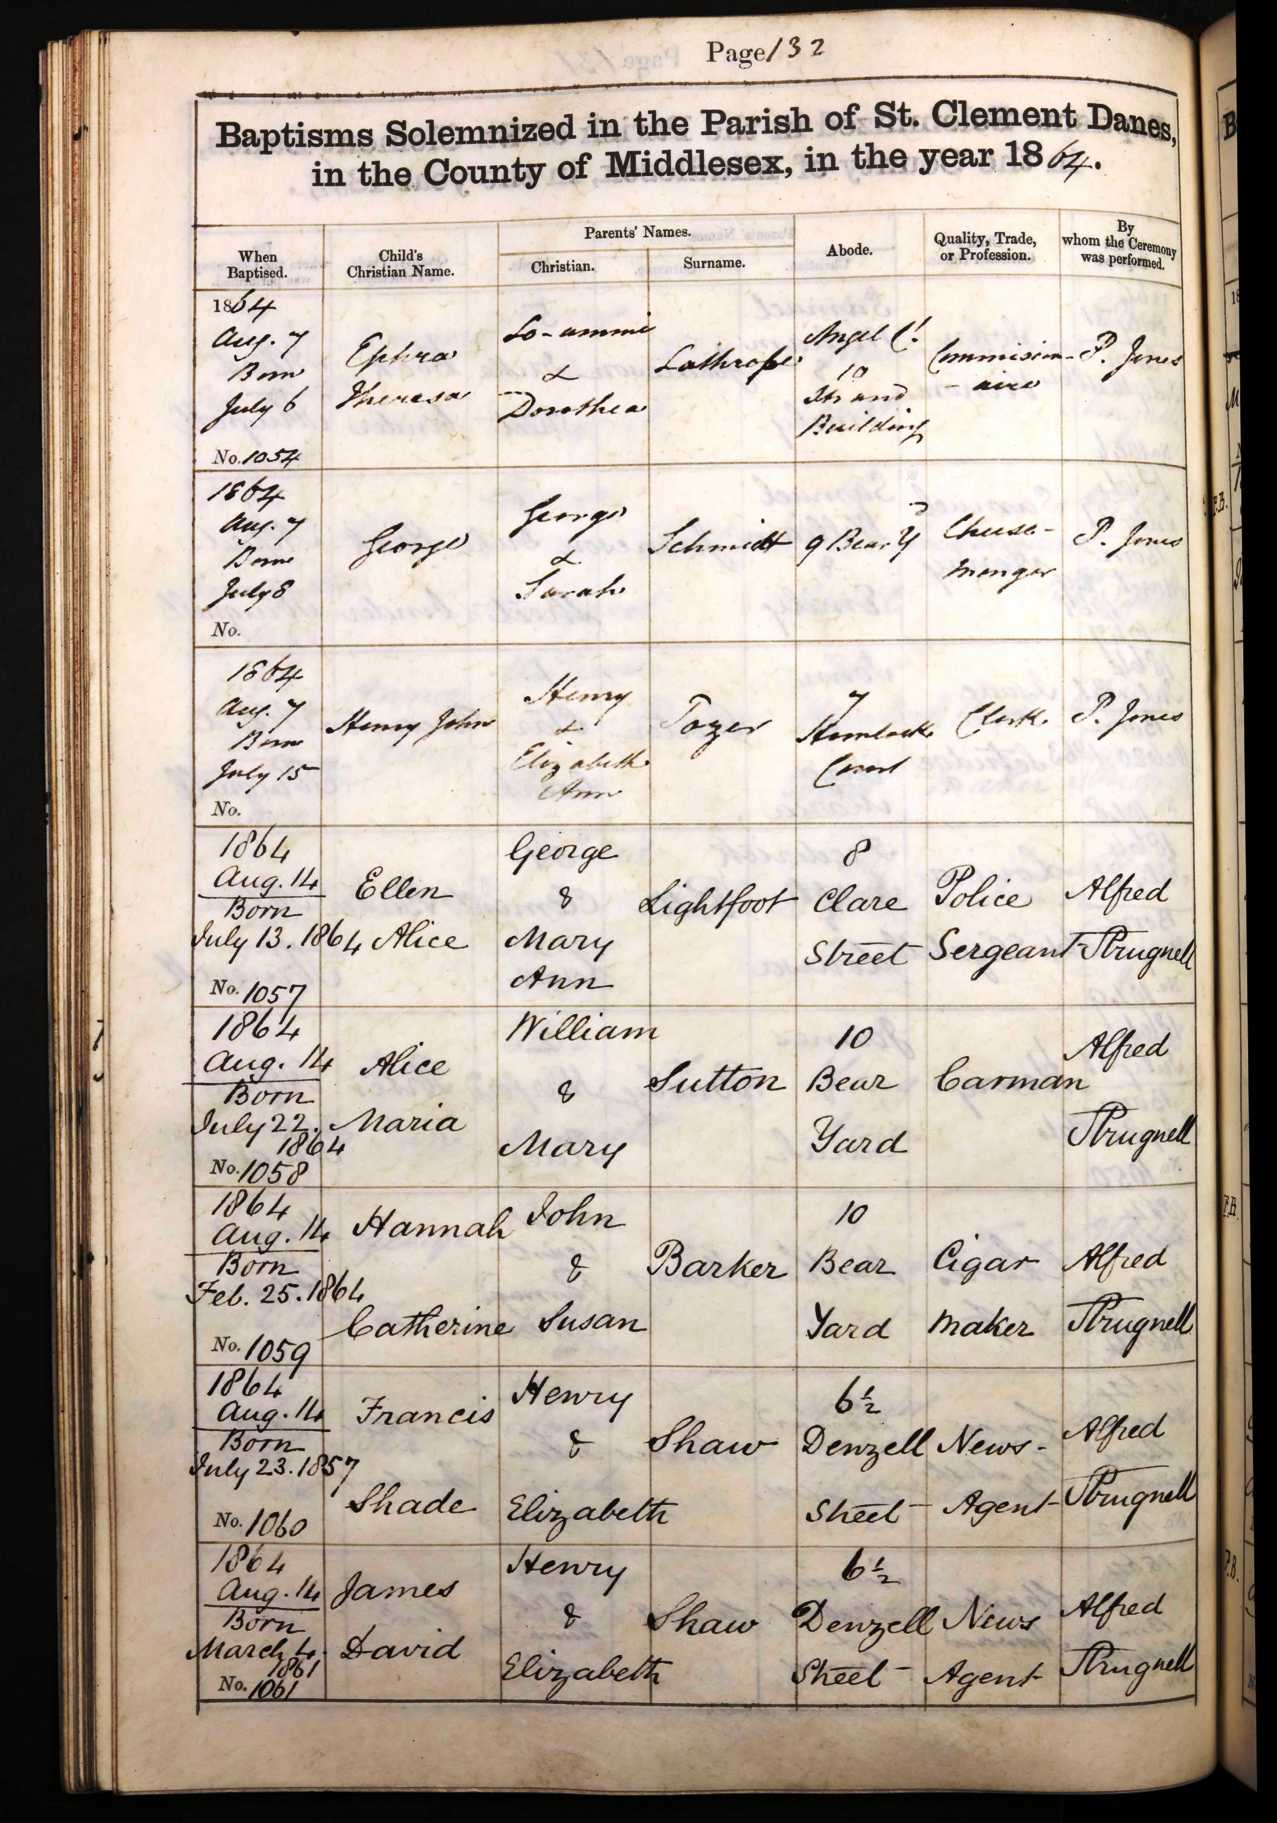 Page 132
Baptisms Solemnized in the Parish of St. Clement Danes,
in the County of Middlesex, in the year 1864.
When Baptised.
Child's Christian Name.
Parents' Names.
Christian.
Surname.
Abode.
Quality, Trade, or Profession.
By whom the Ceremony was performed.
1864
Aug. 7
Born
July 6
No. 1054
Ephra
Theresa
Lo-ammi
&
Dorothea
Lathrope
Angel Ct.
10
Strand
Building
Commission-
-aire
P. Jones
1864
Aug. 7
Born
July 8
No.
George
George
&
Sarah
Schmidt
9 Bear Yd
Cheese-
monger
P. Jones
1864
Aug. 7
Born
July 15
No.
Henry John
Henry
&
Elizabeth
Ann
Tozer
7
Hemlock
Court
Clerk
P. Jones
1864
Aug. 14
Born
July 13. 1864
No. 1057
Ellen
Alice
George
&
Mary
Ann
Lightfoot
8
Clare
Street
Police
Sergeant
Alfred
Strugnell
1864
Aug. 14
Born
July 22.
1864
No. 1058
Alice
Maria
William
&
Mary
Sutton
10
Bear
Yard
Carman
Alfred
Strugnell
1864
Aug. 14
Born
Feb. 25. 1864
No. 1059
Hannah
Catherine
John
&
Susan
Barker
10
Bear
Yard
Cigar
Maker
Alfred
Strugnell
1864
Aug. 14
Born
July 23. 1857
No. 1060
Francis
Shade
Henry
&
Elizabeth
Shaw
6½
Denzell
Street
News-
Agent
Alfred
Strugnell
1864
Aug. 14
Born
March 4.
1861
No. 1061
James
David
Henry
&
Elizabeth
Shaw
6½
Denzell
Street
News
Agent
Alfred
Strugnell